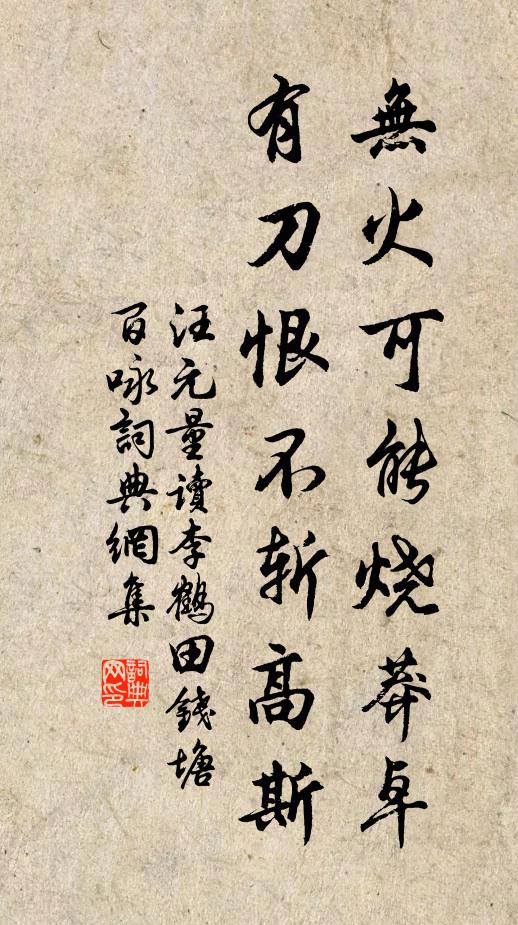 無火可能燒莽卓
有刀恨不斬高斯
汪元量讀李鶴田錢塘
百咏詞典網集
詞典
网印